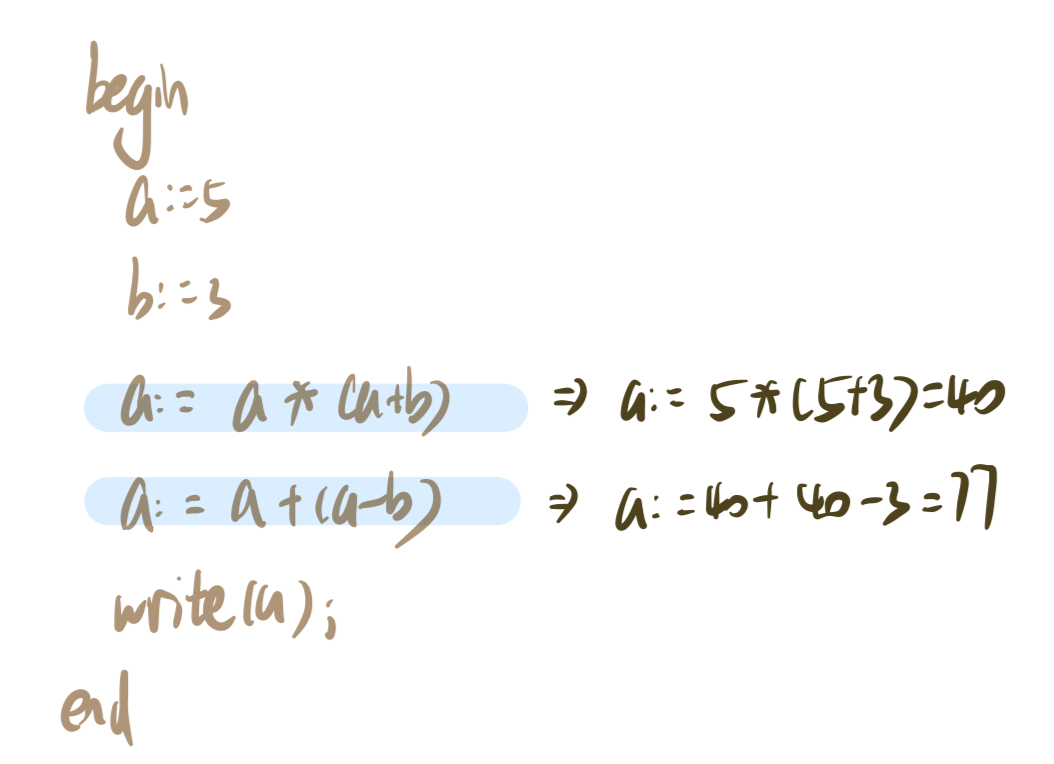 begin
a:=5
b:=3
a:= a * (a+b) ⇒ a:= 5*(5+3)=40
a:= a+(a-b) ⇒ a:=40+40-3=77
write(a);
end